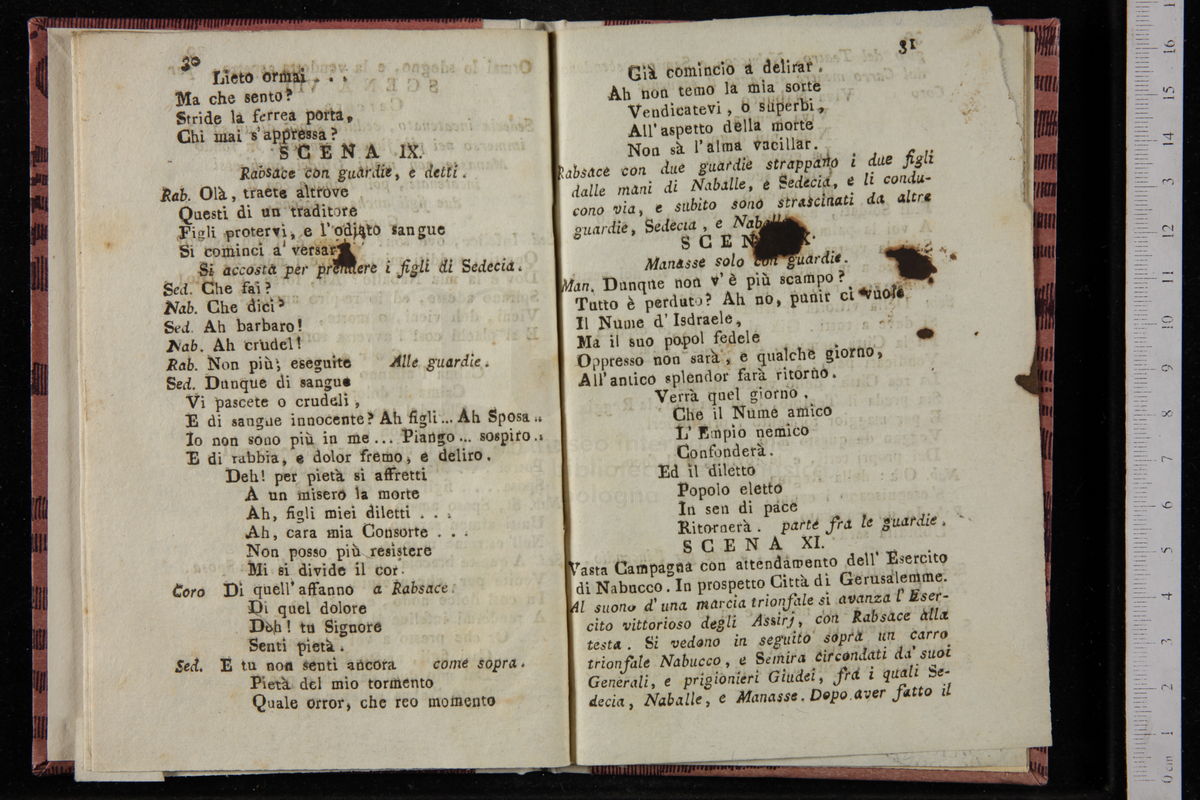 30
Lieto ormai . . .
Ma che sento?
Stride la ferrea porta,
Chi mai s'appressa?
SCENA IX.
Rabsace con guardie, e detti.
Rab. Olà, traete altrove
Questi di un traditore
Figli protervi, e l'odiato sangue
Si cominci a versar
Si accosta per prendere i figli di Sedecia.
Sed. Che fai?
Nab. Che dici?
Sed. Ah barbaro!
Nab. Ah crudel!
Rab. Non più; eseguite Alle guardie.
Sed. Dunque di sangue
Vi pascete o crudeli,
E di sangue innocente? Ah figli... Ah Sposa..
Io non sono più in me... Piango... sospiro..
E di rabbia, e dolor fremo, e deliro.
Deh! per pietà si affretti
A un misero la morte
Ah, figli miei diletti . . .
Ah, cara mia Consorte . . .
Non posso più resistere
Mi si divide il cor.
Coro Di quell'affanno a Rabsace.
Di quel dolore
Deh! tu Signore
Senti pietà.
Sed. E tu non senti ancora come sopra.
Pietà del mio tormento
Quale orror, che reo momento
31
Già comincio a delirar.
Ah non temo la mia sorte
Vendicatevi, o superbi,
All'aspetto della morte
Non sà l'alma vacillar.
Rabsace con due guardie strappano i due figli
dalle mani di Naballe, e Sedecia, e li condu-
cono via, e subito sono strascinati da altre
guardie, Sedecia, e Naballe
SCEN X.
Manasse solo con guardie.
Man. Dunque non v'è più scampo?
Tutto è perduto? Ah no, punir ci vuole
Il Nume d'Isdraele,
Ma il suo popol fedele
Oppresso non sarà, e qualche giorno,
All'antico splendor farà ritorno.
Verrà quel giorno.
Che il Nume amico
L'Empio nemico
Confonderà.
Ed il diletto
Popolo eletto
In sen di pace
Ritornerà. parte fra le guardie.
SCENA XI.
Vasta Campagna con attendamento dell'Esercito
di Nabucco. In prospetto Città di Gerusalemme.
Al suono d'una marcia trionfale si avanza l'Eser-
cito vittorioso degli Assirj, con Rabsace alla
testa. Si vedono in seguito sopra un carro
trionfale Nabucco, e Semira circondati da' suoi
Generali, e prigionieri Giudei, fra i quali Se-
decia, Naballe, e Manasse. Dopo aver fatto il